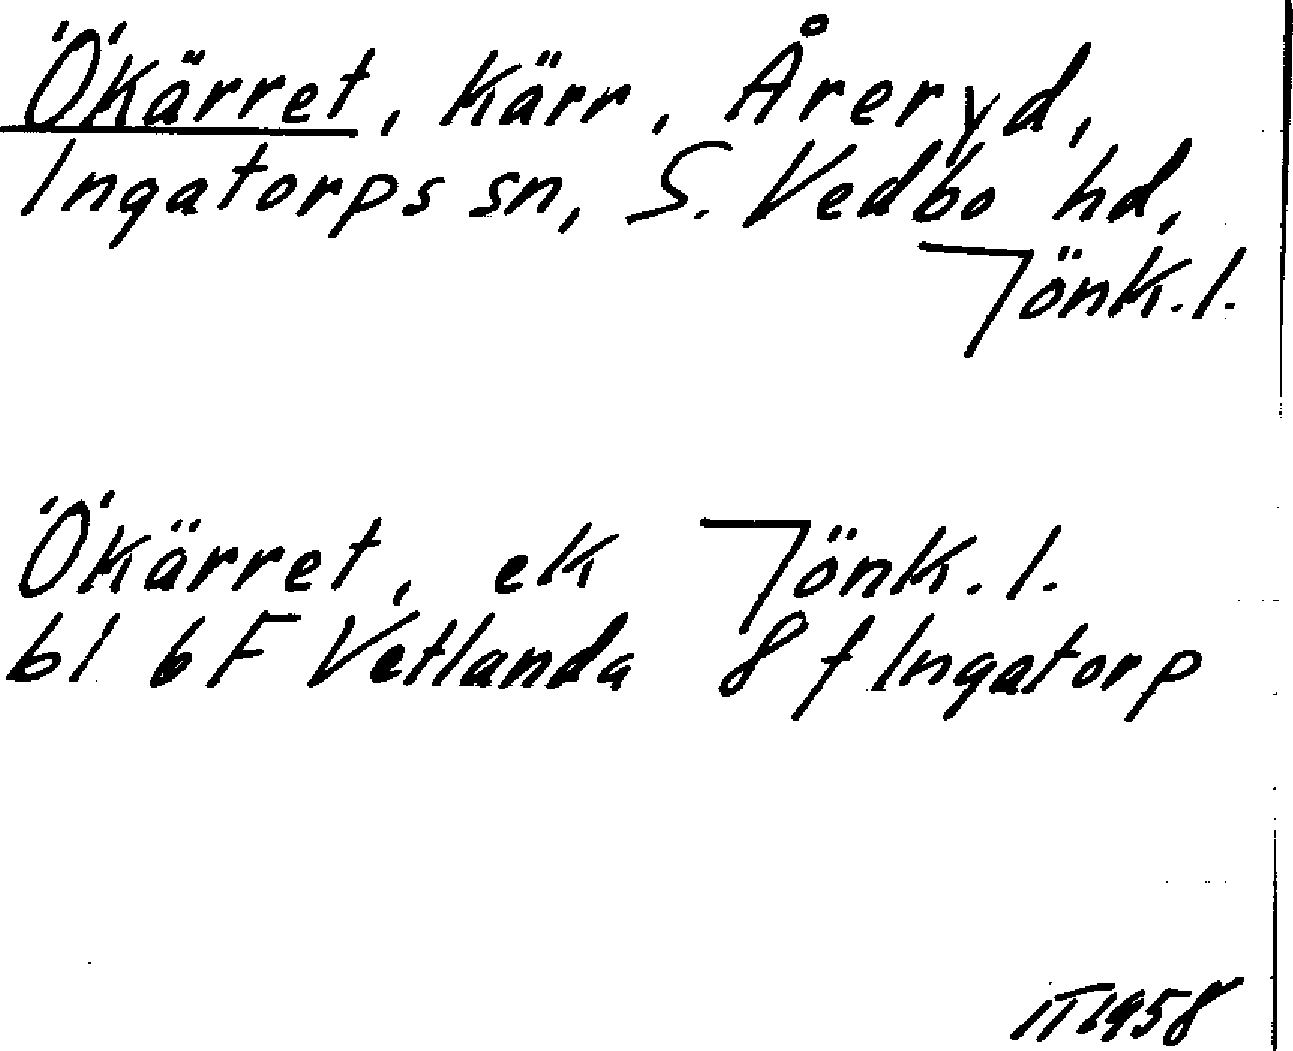 Ökärret, kärr, Åreryd,
Ingatorps sn, S. Vedbo hd,
Jönk. l.
Ökärret, ek Jönk. l.
bl 6F Vetlanda 8 f Ingatorp
IT 1958